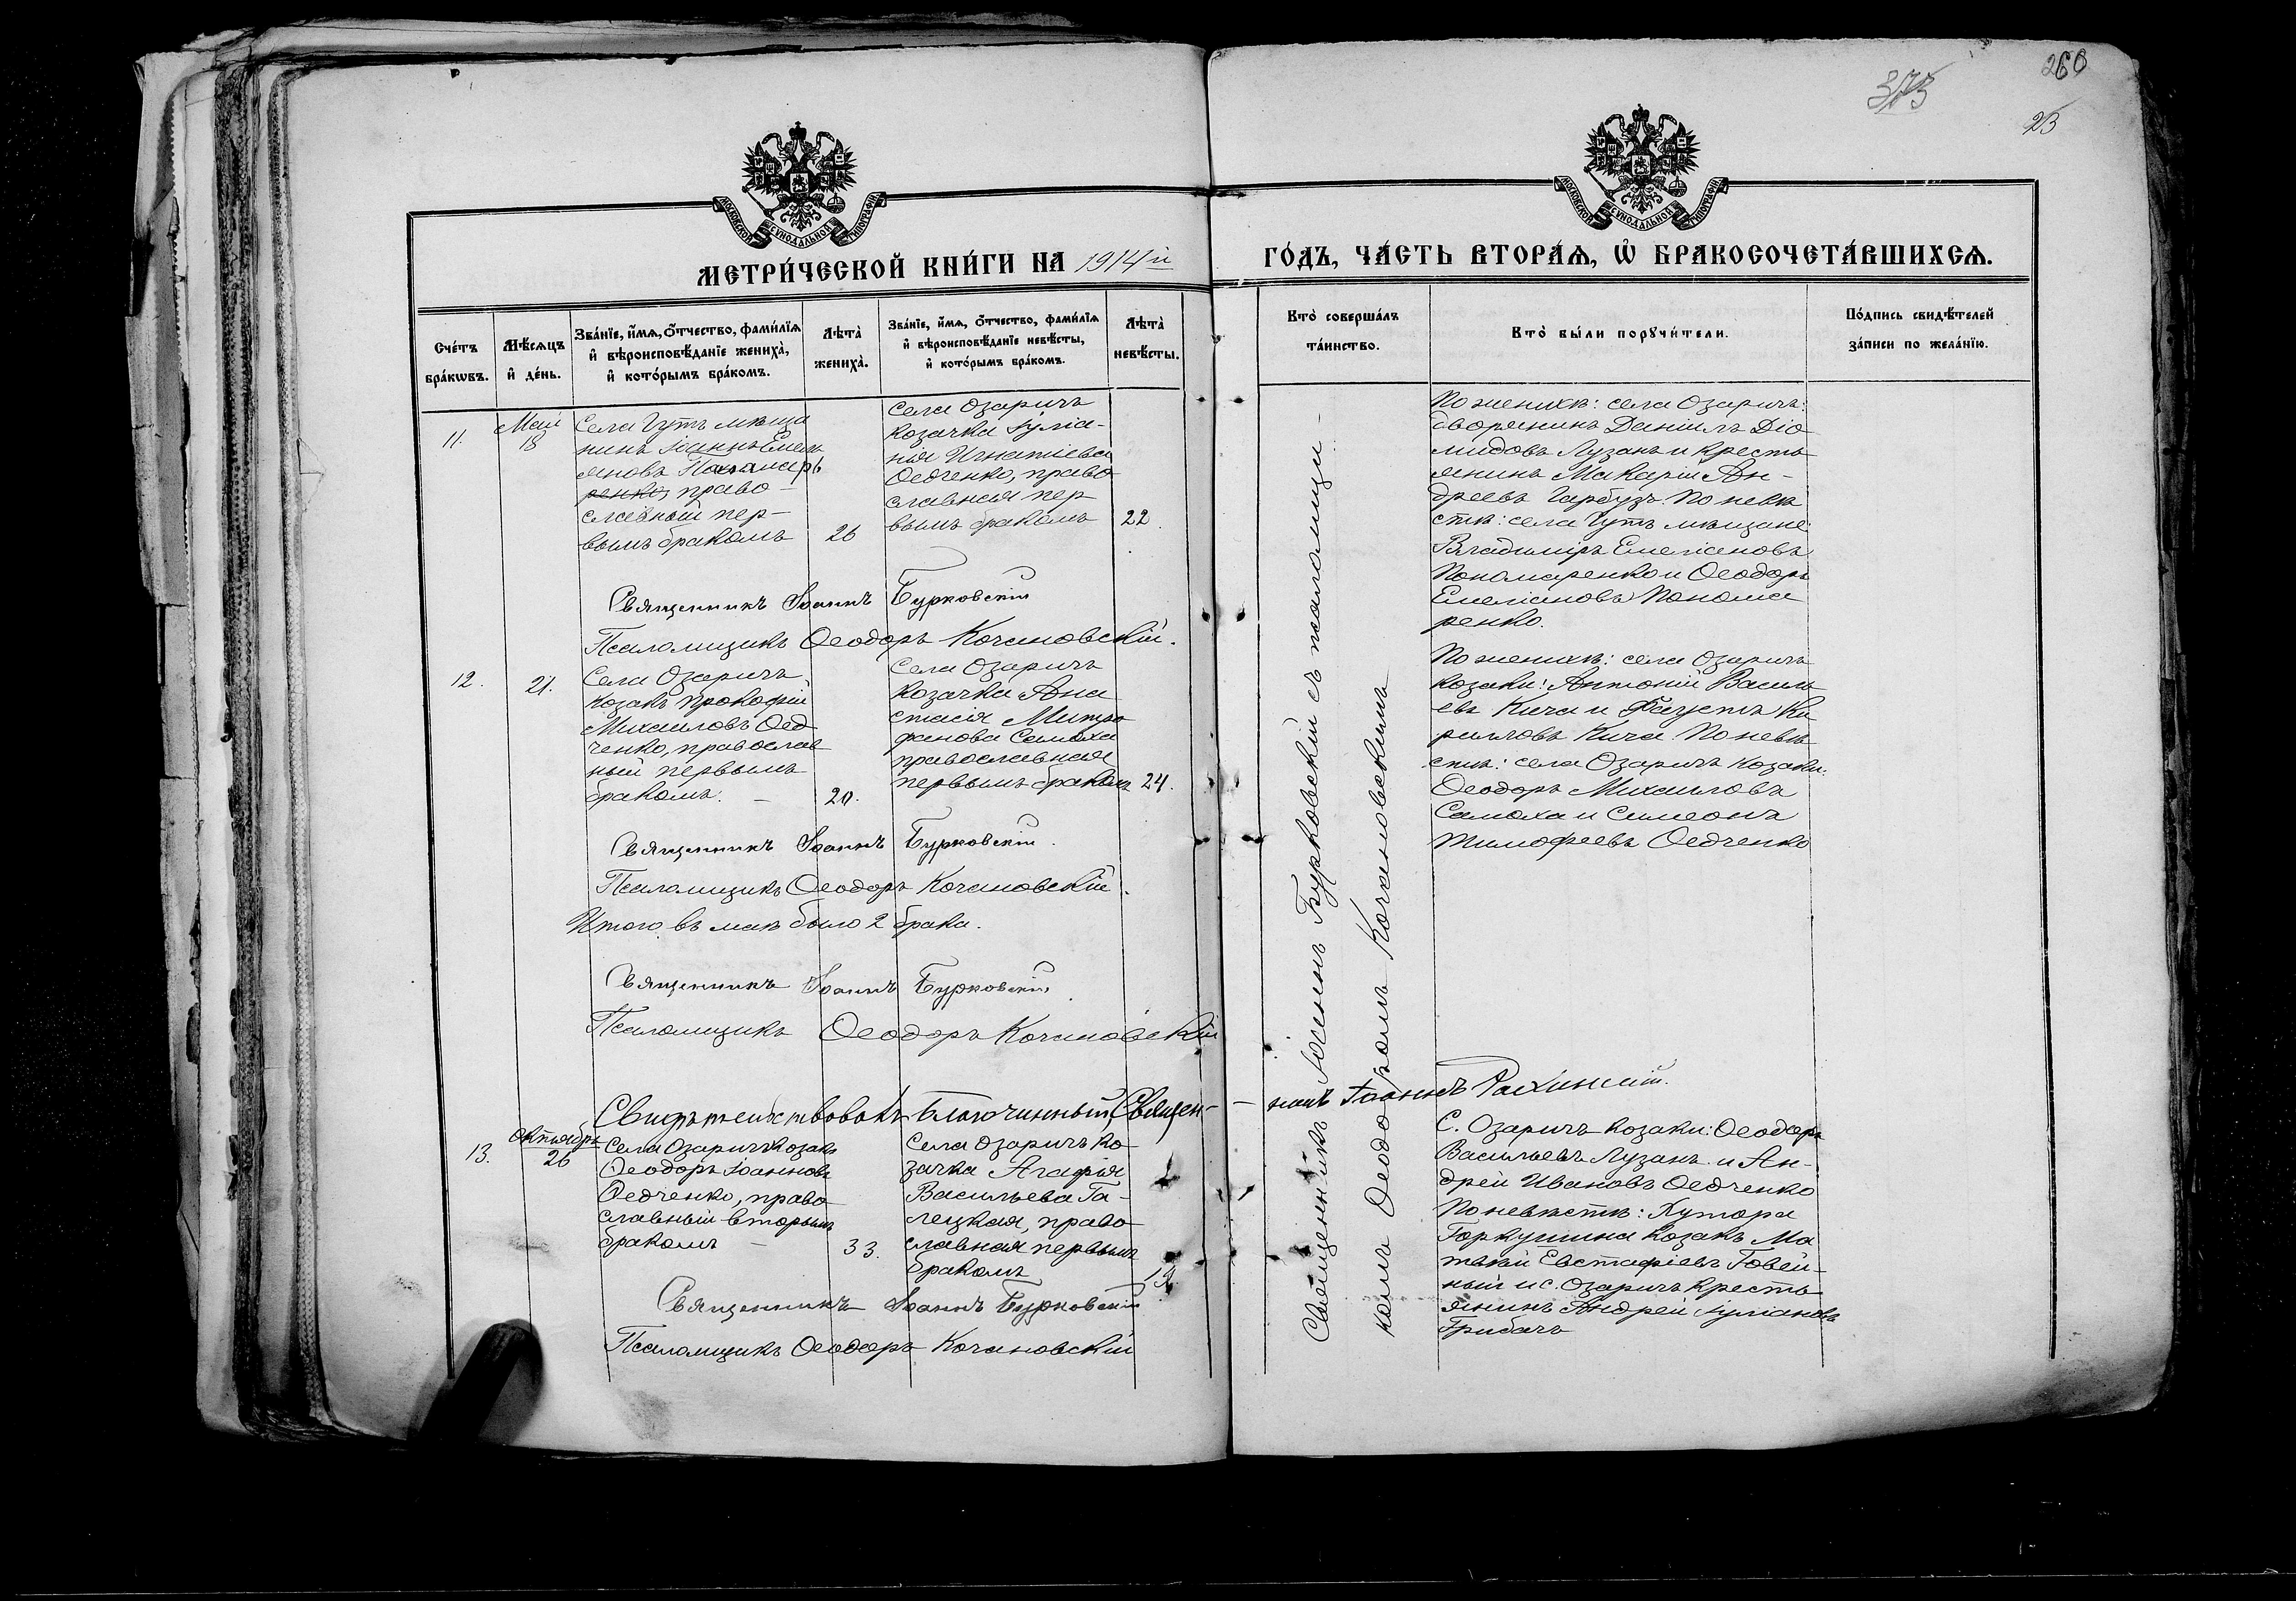 260
375
23
МОСКОВСКОЙ СУНОДАЛЬНОЙ ТИПОГРАФІИ
МОСКОВСКОЙ СУНОДАЛЬНОЙ ТИПОГРАФІИ
МЕТРИ́ЧЕСКОЙ КНИ́ГИ НА 1914й
ГО́ДЪ, ЧА́СТЬ ВТОРА́Ѧ, Ѡ҆ БРАКОСОЧЕТА́ВШИХСѦ.
Сче́тъ бра́кѡвъ.
Мѣ́сѧцъ и҆ де́нь.
Зва́нїе, и҆́мѧ, ѻ҆́тчество, фами́лїѧ
и҆ вѣроисповѣ́данїе жениха̀,
и҆ кото́рымъ бра́комъ.
Лѣта̀ жениха̀.
Зва́нїе, и҆́мѧ, ѻ҆́тчество, фами́лїѧ
и҆ вѣроисповѣ́данїе невѣ́сты,
и҆ кото́рымъ бра́комъ.
Лѣта̀ невѣ́сты.
Кто̀ соверша́лъ
та́инство.
Кто̀ бы́ли порꙋчи́тели.
По́дпись свидѣ́телей
за́писи по жела́нїю.
11.
Май
18
Села Гутъ мѣща
нинъ Іоаннъ Емель
яновъ Пономар
ренко, право-
славный пер-
вымъ бракомъ
26
Села Озаричъ
козачка Іуліа-
нія Игнатіева
Ѳедченко, право
славная пер
вымъ бракомъ
22.
По женихѣ: села Озаричъ:
дворянинъ Даніилъ Діо
мидовъ Лузанъ и кресть
янинъ Макарій Ан-
дреевъ Гарбузъ. По невѣ
стѣ: села Гутъ мѣщане
Владиміръ Емеліановъ
Пономаренко и Ѳеодоръ
Емеліановъ Понома
ренко.
Священникъ Іоаннъ Бурковскій
Псаломщикъ Ѳеодоръ Кочановскій.
12.
21.
Села Озаричъ
козакъ Прокофій
Михаиловъ Ѳед
ченко, православ
ный первымъ
бракомъ.
20.
Села Озаричъ
козачка Ана
стасія Митро
фанова Самоха
православная
первымъ бракомъ
24.
По женихѣ: села Озаричъ
козаки: Антоній Василь
евъ Кича и Фаустъ Ки
рилловъ Кича. По невѣ
стѣ: села Озаричъ козаки:
Ѳеодоръ Михаиловъ
Самоха и Симеонъ
Тимофеевъ Ѳедченко
Священникъ Іоаннъ Бурковскій.
Псаломщикъ Ѳеодоръ Кочановскій.
Итого въ маѣ было 2 брака.
Священникъ Іоаннъ Бурковскій
Псаломщикъ Ѳеодоръ Кочановскій
Свидѣтельствовалъ Благочинный, Священ-
никъ Іоаннъ
13.
Октябрь
26
Села Озаричъ козакъ
Ѳеодоръ Іоанновъ
Ѳедченко, право
славный вторымъ
бракомъ
33.
Села Озаричъ ко-
зачка Агафія
Васильева Га-
лецкая, право
славная первымъ
бракомъ
19.
С. Озаричъ козаки: Ѳеодоръ
Васильевъ Лузанъ и Ан-
дрей Ивановъ Ѳедченко
По невѣстѣ: Хутора
Горкушина козакъ Ма
твѣй Евстафіевъ Говей-
ный и с. Озаричъ кресть
янинъ Андрей Іуліановъ
Грибачъ
Священникъ Іоаннъ Бурковскій
Псаломщикъ Ѳеодоръ Кочановскій
Священникъ Іоаннъ Бурковскій съ псаломщи-
комъ Ѳеодоромъ Кочановскимъ